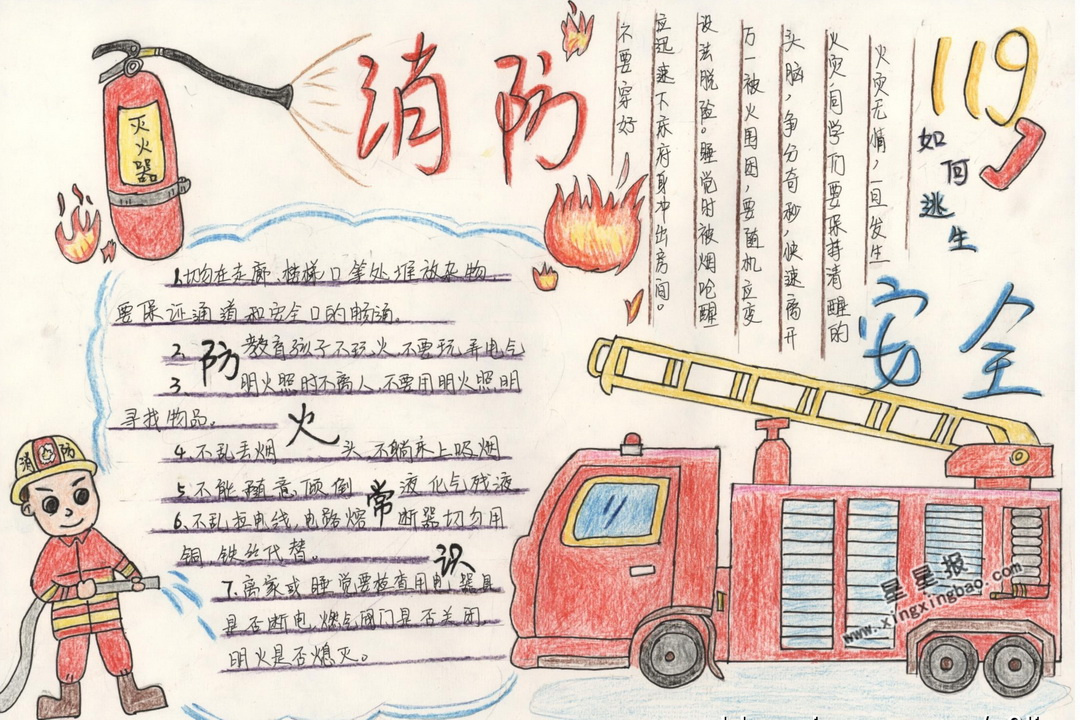 灭火器
消防
119
如何逃生
火灾无情,一旦发生
火灾,同学们要保持清醒的
头脑,争分夺秒,快速离开
万一被火围困,要随机应变
设法脱险。睡觉时被烟呛醒
应迅速下床府身冲出房间。
不要穿好
安全
1.切勿在走廊、楼梯口等处堆放杂物,
要保证通道和安全口的畅通。
2、教育孩子不玩火、不要玩弄电气
3、明火照时不离人、不要用明火照明
寻找物品。
4、不乱丢烟头、不躺床上吸烟
5、不能随意倾倒液化气残液
6、不乱拉电线、电路熔断器切勿用
铜、铁丝代替。
7、离家或睡觉要检查用电器具
是否断电,燃气阀门是否关闭,
明火是否熄灭。
防火常识
消防
星星报
www.xingxingbao.com